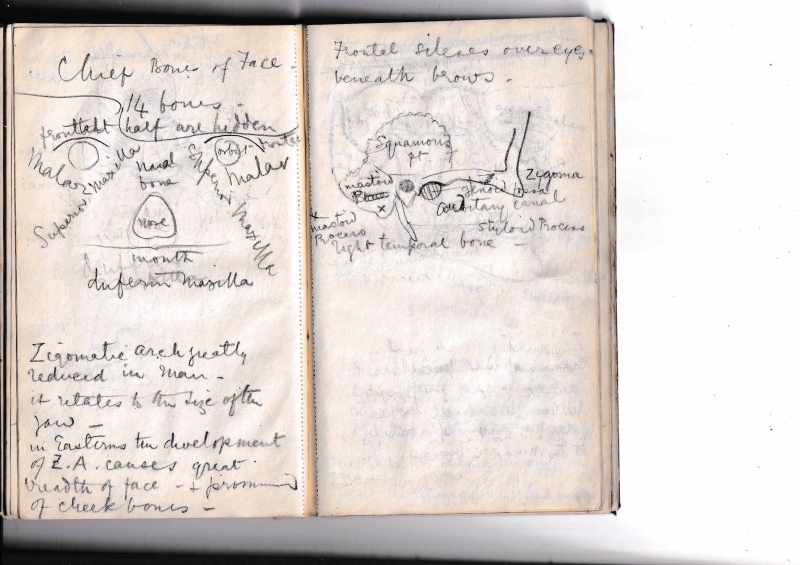 Chief Bones of Face -
14 bones -
half are hidden
frontal
orbit
frontal
Malar
Superior Maxilla
nasal
bone
Superior Maxilla
Malar
nose
mouth
Inferior Maxilla
Zigomatic arch greatly
reduced in man -
it relates to the size of the
jaw -
in Easterns the development
of Z.A. causes great
breadth of face - +
of cheek bones -
Frontal over eyes
beneath brows -
Squamous
pt.
mastoid
x
Zygoma
Glenoid fossa
canal
x
mastoid
Process
Styloid Process
right temporal bone -